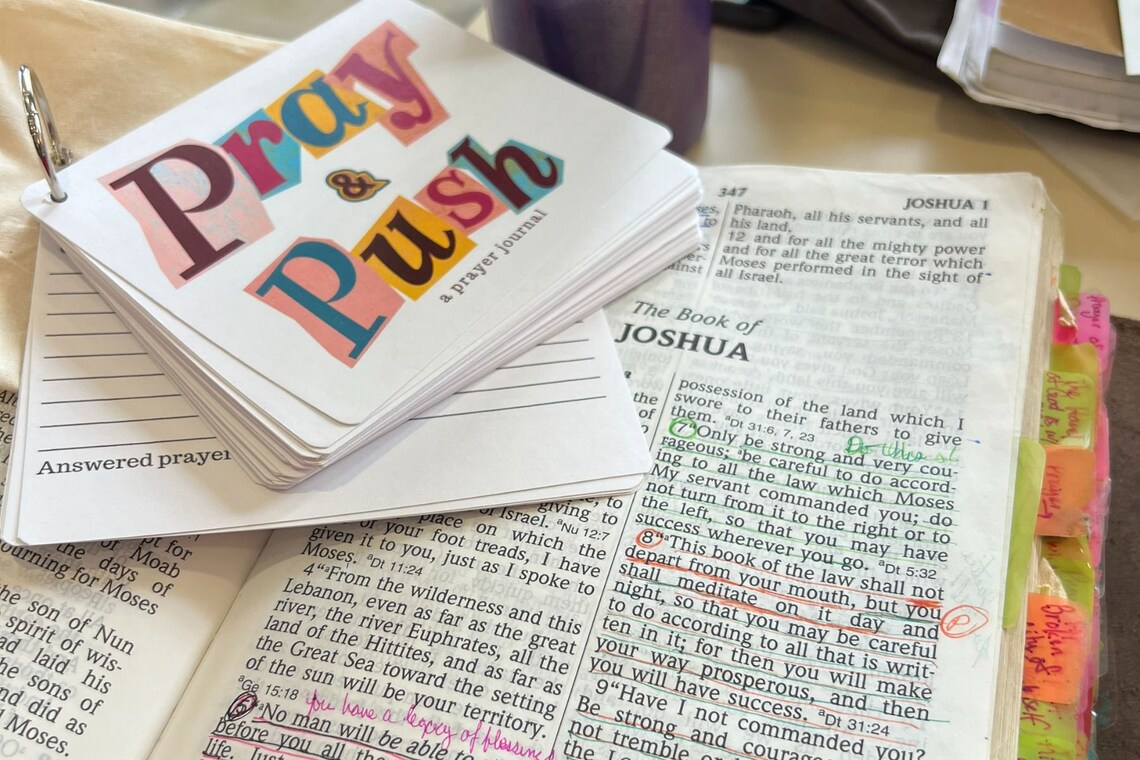 Pray
&
Push
a prayer journal
Answered prayer
347
JOSHUA 1
Pharaoh, all his servants, and all
his land,
12 and for all the mighty power
and for all the great terror which
Moses performed in the sight of
all Israel.
The Book of
JOSHUA
ept for
of Moab
the days of
ourning for Moses
the son of Nun
spirit of wis-
ad laid his
the sons of
and did as
d Moses.
the
of
to
giving to
of Israel. ᵃNu 12:7
place on which the
of your foot treads, I have
given it to you, just as I spoke to
Moses. ᵃDt 11:24
4 "ᵃFrom the wilderness and this
Lebanon, even as far as the great
river, the river Euphrates, all the
land of the Hittites, and as far as
the Great Sea toward the setting
of the sun will be your territory.
ᵃGe 15:18
you have a legacy of blessing
5 "ᵃNo man will be able to
before you all the
life. Just
possession of the land which I
swore to their fathers to give
them. ᵃDt 31:6, 7, 23
Do this
7 "Only be strong and very cou-
rageous; ᵃbe careful to do accord-
ing to all the law which Moses
My servant commanded you; do
not turn from it to the right or to
the left, so that you may have
success wherever you go. ᵃDt 5:32
8 "ᵃThis book of the law shall not
depart from your mouth, but you
shall meditate on it day and
P
night, so that you may be careful
to do according to all that is writ-
ten in it; for then you will make
your way prosperous, and then
you will have success. ᵃDt 31:24
9 "Have I not commanded you?
Be strong and courage
not tremble or
the Lo